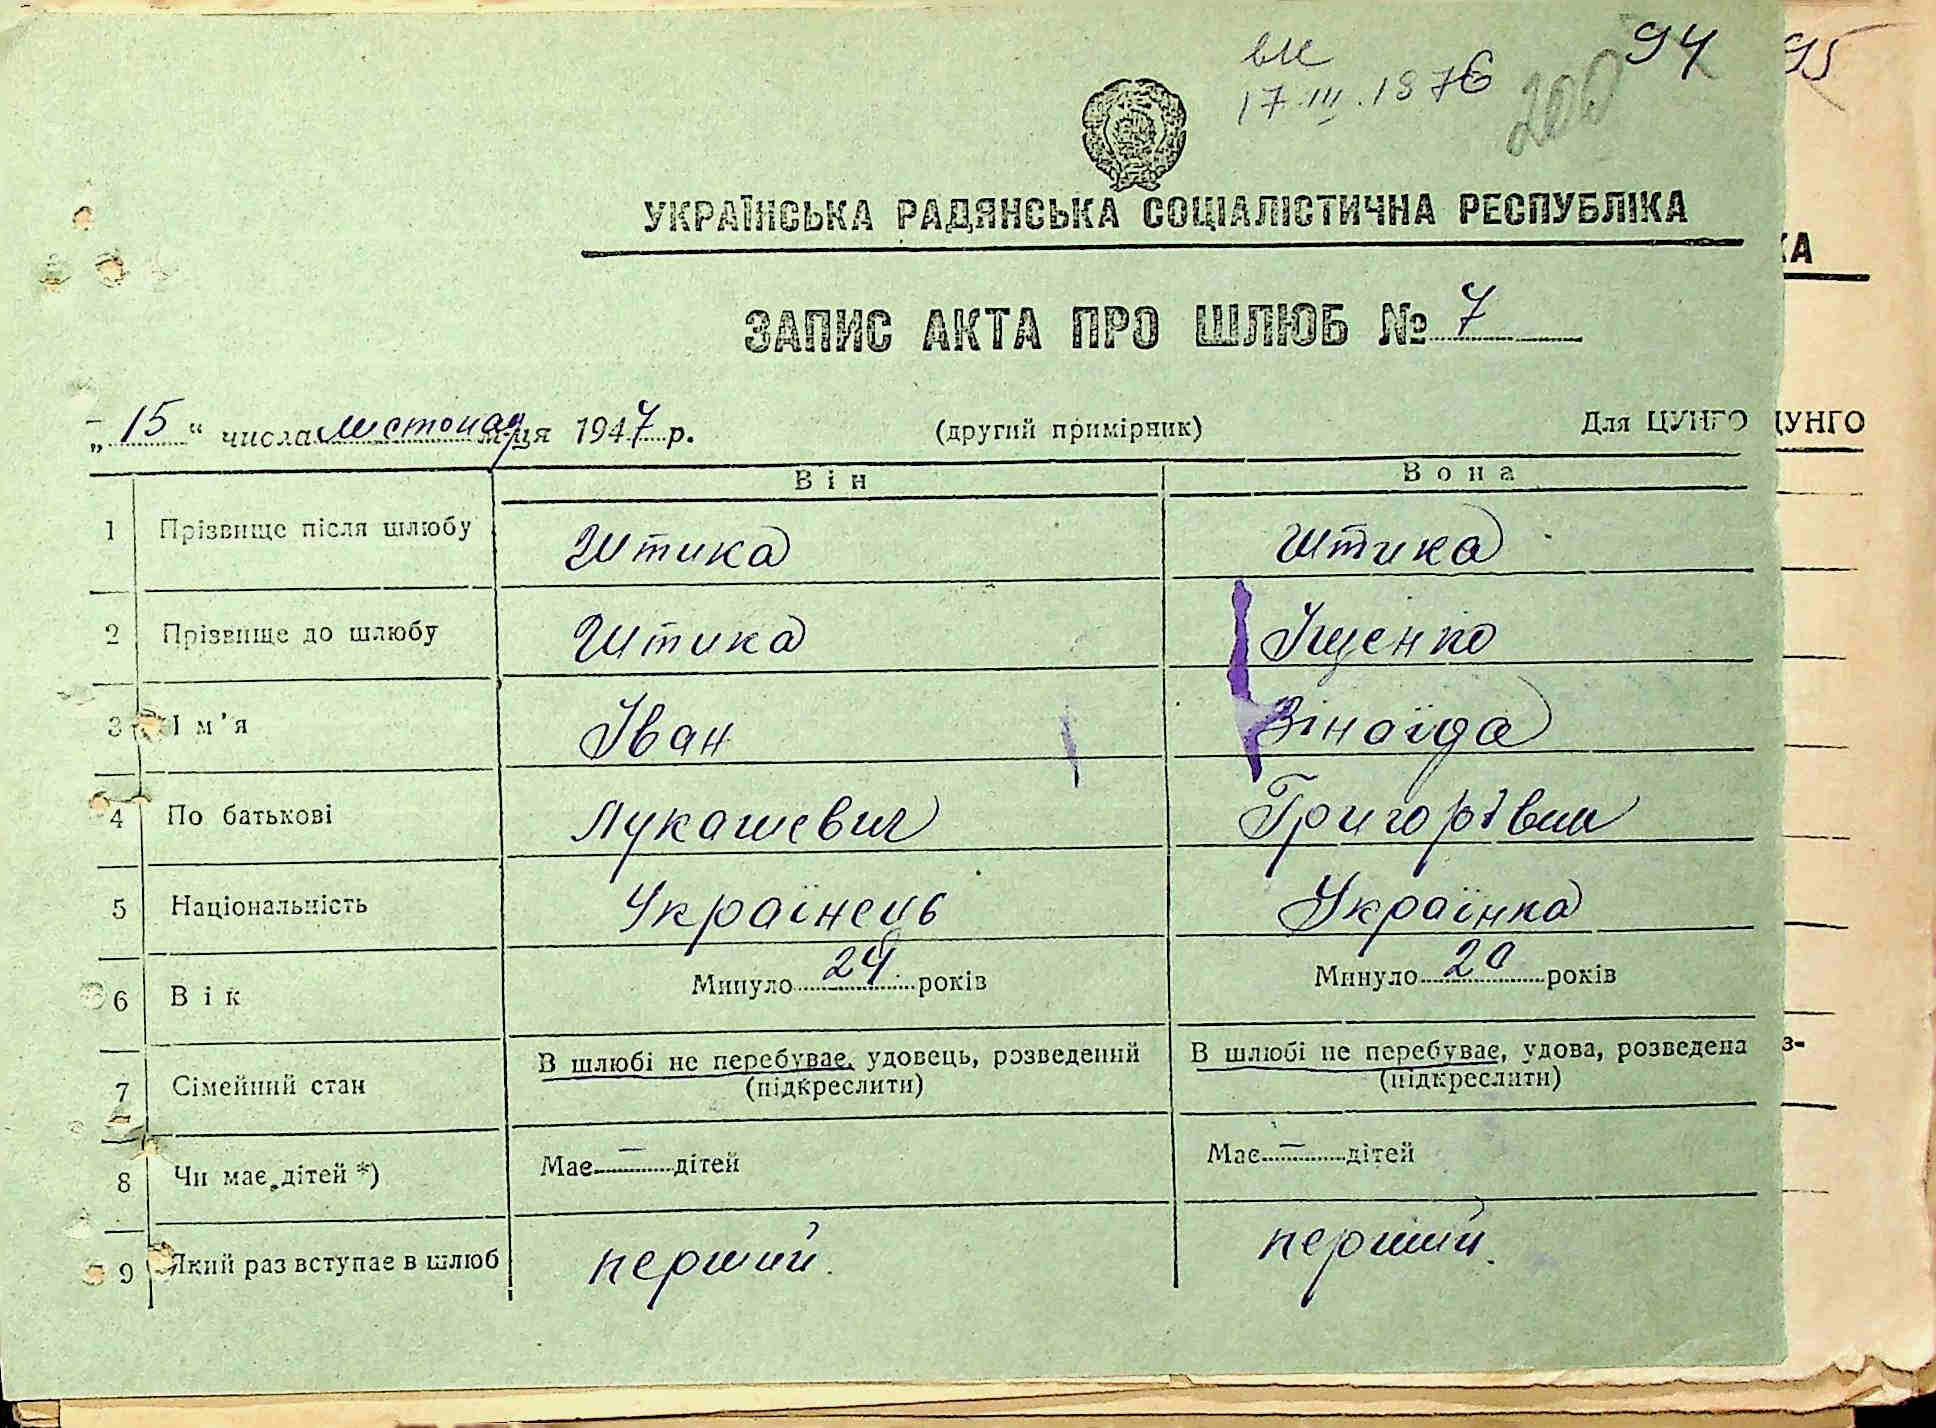 вк
17.III.1976
200
94
95
УКРАЇНСЬКА РАДЯНСЬКА СОЦІАЛІСТИЧНА РЕСПУБЛІКА
КА
ЗАПИС АКТА ПРО ШЛЮБ № 7
„15“ числа листопад м-ця 1947 р. (другий примірник) Для ЦУНГО
ЦУНГО
Він Вона
1 Прізвище після шлюбу Штика Штика
2 Прізвище до шлюбу Штика Іщенко
3 Ім'я Іван Зінаїда
4 По батькові Лукашевич Григорівна
5 Національність Українець Українка
6 Вік Минуло 24 років Минуло 20 років
7 Сімейний стан В шлюбі не перебуває, удовець, розведений В шлюбі не перебуває, удова, розведена
(підкреслити) (підкреслити)
8 Чи має дітей *) Має — дітей Має — дітей
9 Який раз вступає в шлюб перший перший.